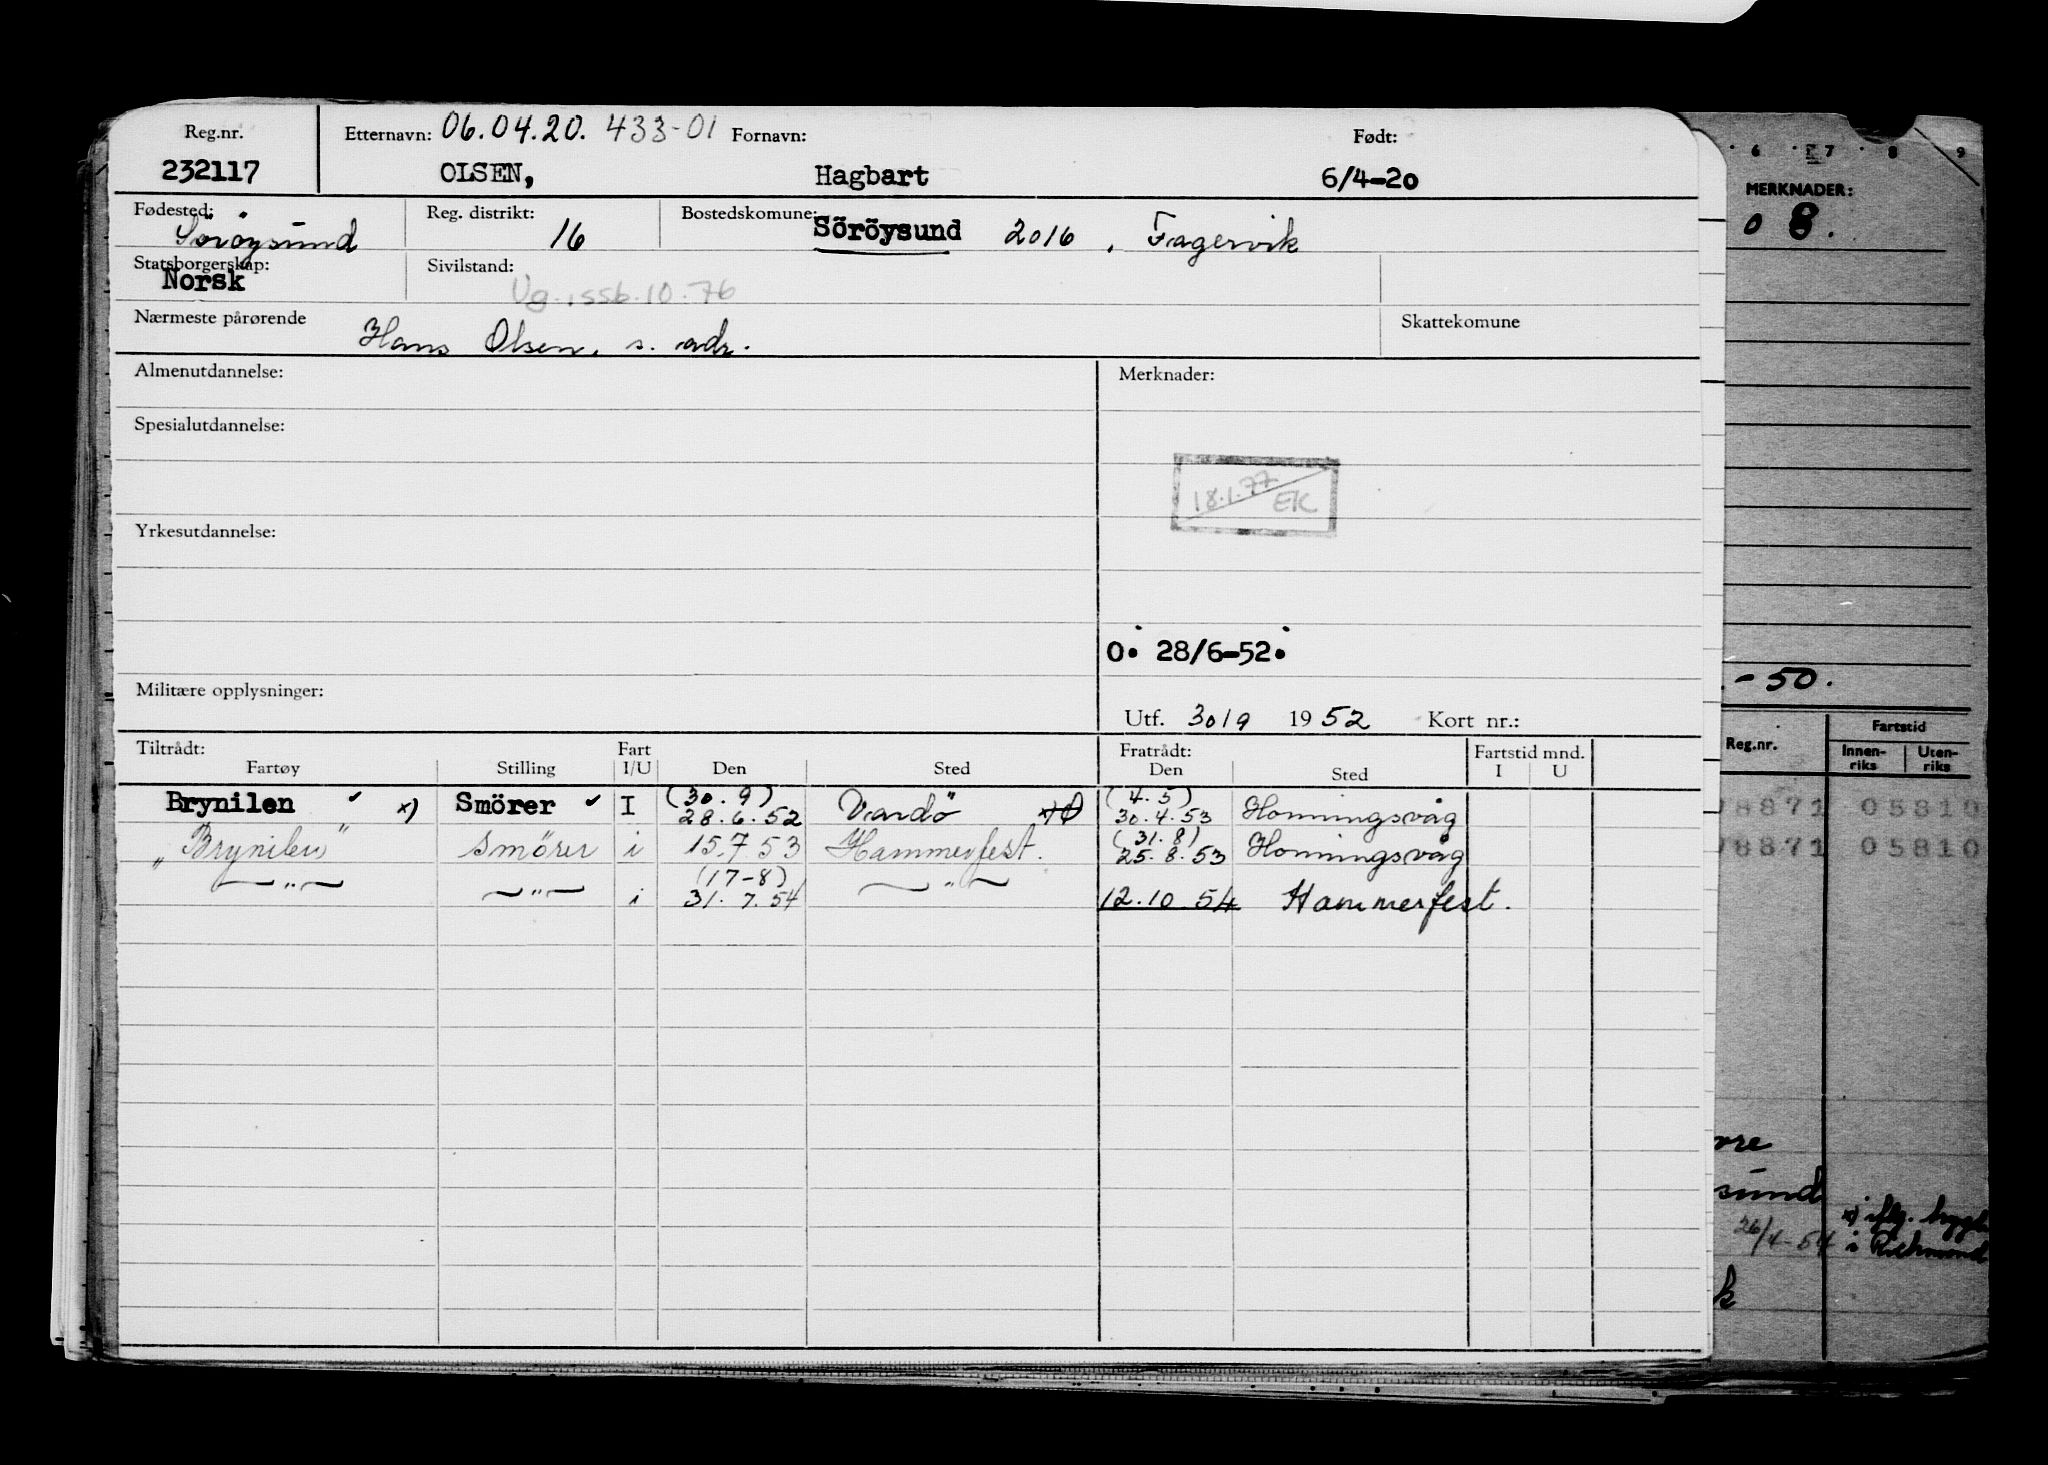 Reg.nr. Etternavn: 06.04.20. 433-01 Fornavn: Født:
232117 OLSEN, Hagbart 6/4-20
Fødested: Reg. distrikt: Bostedskomune:
Söröysund 16 Söröysund 2016, Fagervik
Statsborgerskap: Sivilstand:
Norsk
Nærmeste pårørende Skattekomune
Hans Olsen, s. adr.
Almenutdannelse: Merknader:
Spesialutdannelse:
18.1.77 EK
Yrkesutdannelse:
O. 28/6-52.
Militære opplysninger:
Utf. 30/9 1952 Kort nr.:
Tiltrådt: Fart Fratrådt: Fartstid mnd.
Fartøy Stilling I/U Den Sted Den Sted I U
(30.9) (4.5)
Brynilen x) Smörer I 28.6.52 Vardö 30.4.53 Honningsvåg
(31.8)
"Brynilen" Smörer i 15.7.53 Hammerfest. 25.8.53 Honningsvåg
(17-8)
—"— —"— i 31.7.54 —"— 12.10.54 Hammerfest.
6 7 8 9
MERKNADER:
0 8.
-50.
Reg.nr. Fartstid
Innen-riks Uten-riks
8871 05810
8871 05810
sund
26/4-54
i Richmond